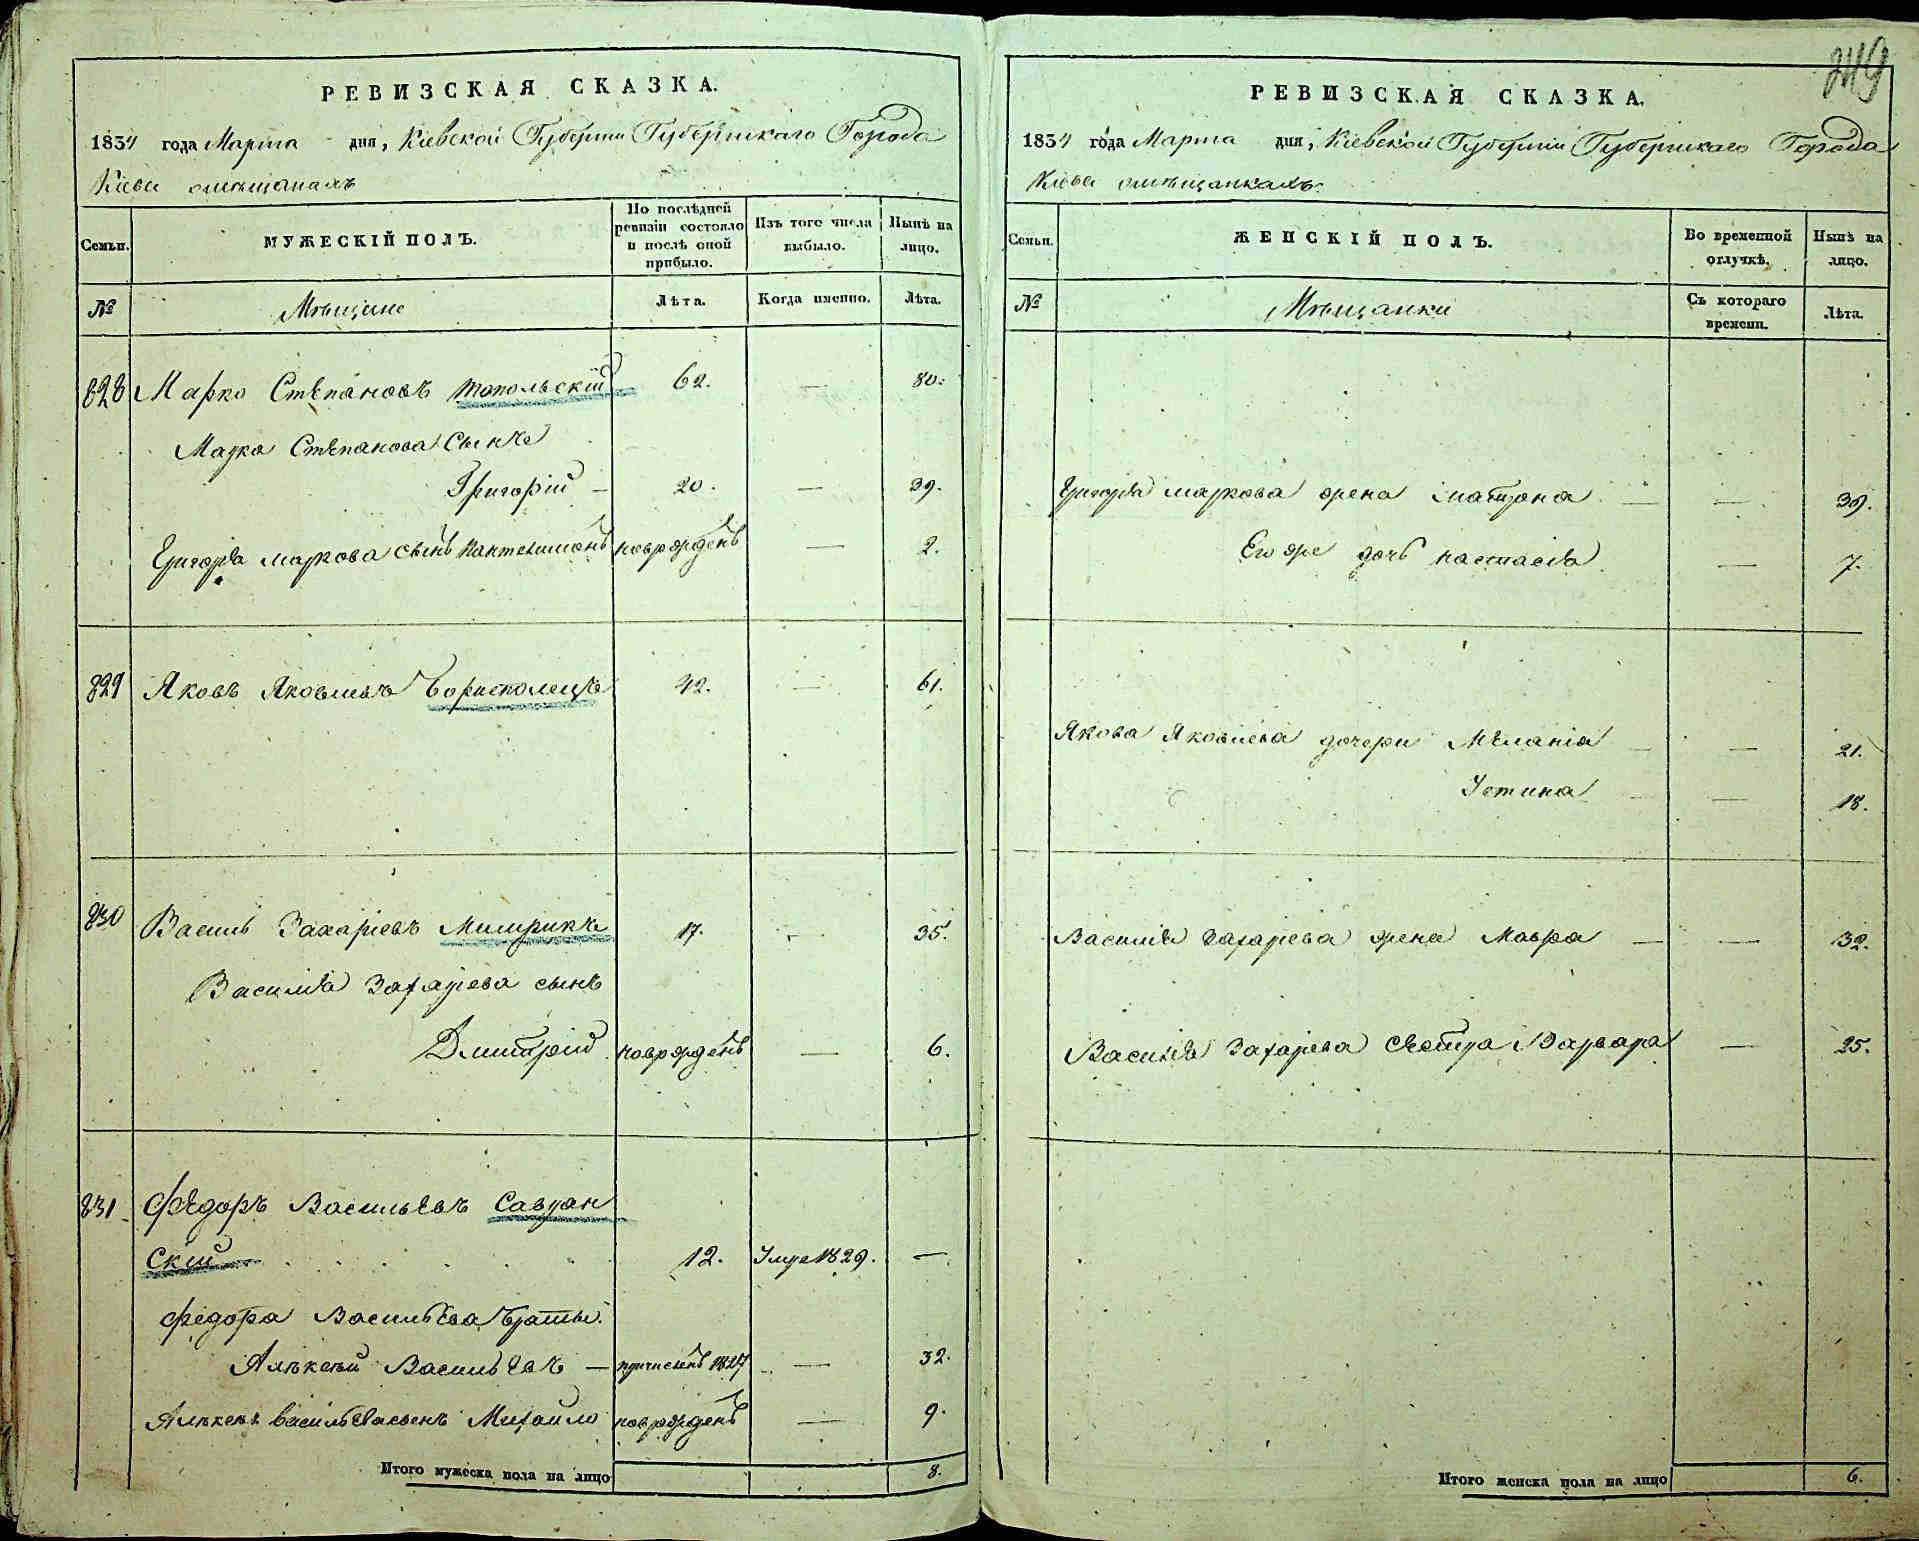 РЕВИЗСКАЯ СКАЗКА.
1834 года Марта дня, Кіевской Губерніи Губернскаго Города
Кіева омѣщанахъ
Семьи.
МУЖЕСКІЙ ПОЛЪ.
По послѣдней ревизіи состояло и послѣ оной прибыло.
Изъ того числа выбыло.
Нынѣ на лицо.
№
Мѣщане
Лѣта.
Когда именно.
Лѣта.
828 Марко Степановъ Топольскій 62. — 80.
Марка Степанова Сынъ
Григорій — 20. — 39.
Григорія Маркова сынъ Пантелимонъ новорожденъ — 2.
829 Яковъ Яковлевъ Борисполецъ 42. — 61.
830 Василь Захаріевъ 17. — 35.
Василія Захаріева сынъ
Дмитрій новорожденъ — 6.
831 Федоръ Васильевъ Савран
скій 12. Умре 1829. —
Федора Васильева братъ
Алѣксѣй Васильевъ — причисленъ 1827 — 32.
Алѣксѣя Васильева сынъ Михайло новорожденъ — 9.
Итого мужеска пола на лицо 8.
249
РЕВИЗСКАЯ СКАЗКА.
1834 года Марта дня, Кіевской Губерніи Губернскаго Города
Кіева омѣщанкахъ
Семьи.
ЖЕНСКІЙ ПОЛЪ.
Во временной отлучкѣ.
Нынѣ на лицо.
№
Мѣщанки
Съ котораго времени.
Лѣта.
Григорія Маркова жена Матрона — — 39.
Его же дочь Настасія — 7.
Якова Яковлева дочери Меланія — — 21.
Устина — — 18.
Василія Захарьева жена Мавра — — 32.
Василія Захарьева сестра Варвара — 25.
Итого женска пола на лицо 6.